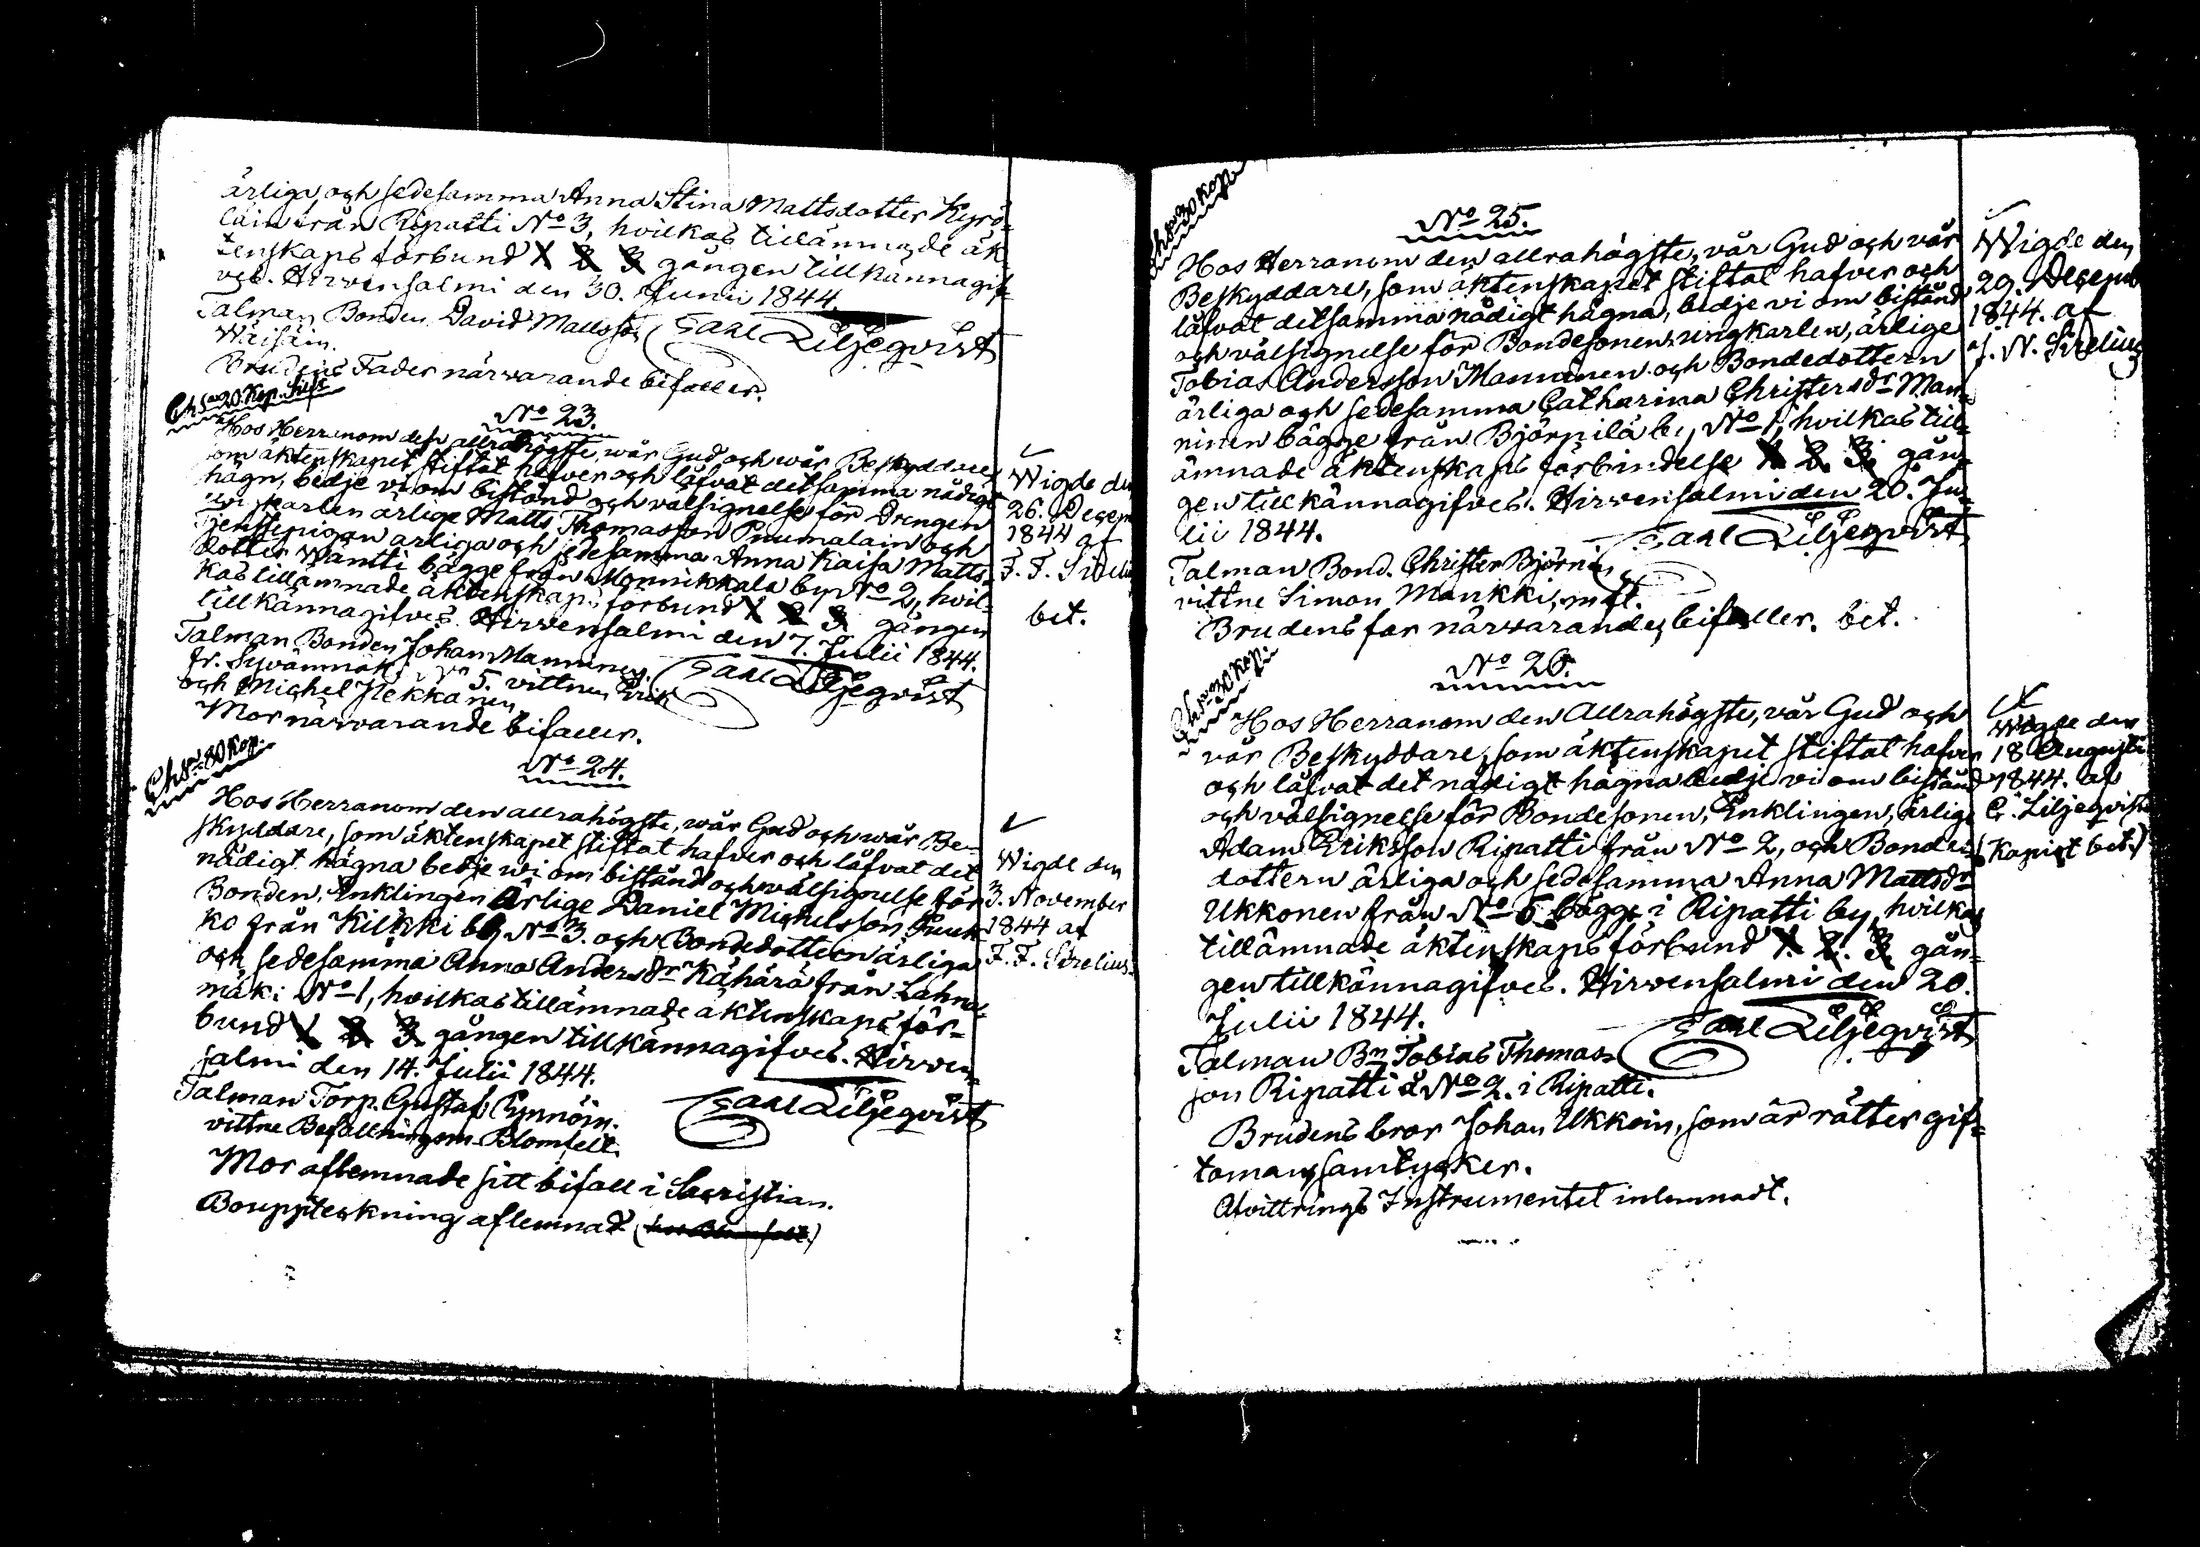 ärliga och sedesamma Anna Stina Mattsdotter Kyrö-
läin från Ripatti No 3, hvilkas tillämnade äk-
tenskaps förbund 1 2 3 gången tillkännagif-
ves. Hirvensalmi den 30. Junii 1844.
Talman Bonden David Mattsson Carl Liljeqvist
Wäisäin.
Brudens Fader närvarande bifaller.
Chs. 20 Kop. Silfr
No 23.
Hos Herranom den allrahögste, wår Gud och wår Beskyddare,
som äktenskapet stiftat hafver och låfvat detsamma nådigt
hägn, bedje vi om bistånd och välsignelse för Drengen
ungkarlen ärlige Matts Thomasson Puumalain och
Tjenstepigan ärliga och sedesamma Anna Kaisa Matts-
dotter Wäntti bägge från Monnikkala by No 2, hvil-
kas tillämnade äktenskaps förbund 1 2 3 gången
tillkännagifves. Hirvensalmi den 7. Julii 1844.
Talman Bonden Johan Manninen Carl Liljeqvist
fr. No 5. vittnen Erik
och Michel Pekkanen
Mor närvarande bifaller.
Wigde den
26. Decem
1844 af
F. F. Sireli
bet.
Chs. 30 Kop.
No 24.
Hos Herranom den allrahögste, wår Gud och wår Be-
skyddare, som äktenskapet stiftat hafver och låfvat det
nådigt hägna bedje wi om bistånd och wälsignelse för
Bonden, Enklingen Ärlige Daniel Michelsson Puuk
ko från Kilkki by No 3. och Bondedottern ärliga
och sedesamma Anna Andersdr Kähärä från Lahna-
mäki No 1, hvilkas tillämnade äktenskaps för-
bund 1 2 3 gången tillkännagifves. Hirven-
salmi den 14. Julii 1844.
Talman Torp. Gustaf Pynnöin. Carl Liljeqvist
vittne Befallningsm. Blomfelt.
Mor aflemnade sitt bifall i Sacristian.
Bouppteckning aflemnad
Wigde den
3. November
1844 af
F. F. Sirelius.
Chs. 30 Kop.
No 25.
Hos Herranom den allrahögste, vår Gud och vår
Beskyddare, som äktenskapet stiftat hafver och
låfvat detsamma nådigt hägna, bedje vi om bistånd
och välsignelse för Bondesonen, ungkarlen, ärlige
Tobias Andersson Manninen och Bondedottern
ärliga och sedesamma Catharina Christersdr Man-
ninen bägge från Björnilä by, No 1, hvilkas till-
ämnade äktenskaps förbindelse 1 2 3 gån-
gen tillkännagifves. Hirvensalmi den 20. Ju-
lii 1844.
Talman Bond. Christer Björnin Carl Liljeqvist
vittne Simon Mankki, m fl.
Brudens far närvarande, bifaller. bet.
Wigde den
29. Decem
1844. af
F. F. Sirelius
Chs. 30 Kop.
No 26.
Hos Herranom den Allrahögste, vår Gud och
vår Beskyddare, som äktenskapet stiftat hafver
och låfvat det nådigt hägna bedje vi om bistånd
och välsignelse för Bondesonen, Enklingen, ärlige
Adam Eriksson Ripatti från No 2, och Bonde-
dottern ärliga och sedesamma Anna Mattsdr
Ukkonen från No 5 bägge i Ripatti by, hvilkas
tillämnade äktenskaps förbund 1. 2. 3. gån-
gen tillkännagifves. Hirvensalmi den 20.
Julii 1844. Carl Liljeqvist
Talman Bn Tobias Thomas-
son Ripatti å No 2. i Ripatti.
Brudens bror Johan Ukkoin, som är rätter gif-
toman, samtycker.
Afvittrings Instrumentet inlemnadt.
Wigde den
18 Augusti
1844. af
C. Liljeqvist
(Kapist bet.)